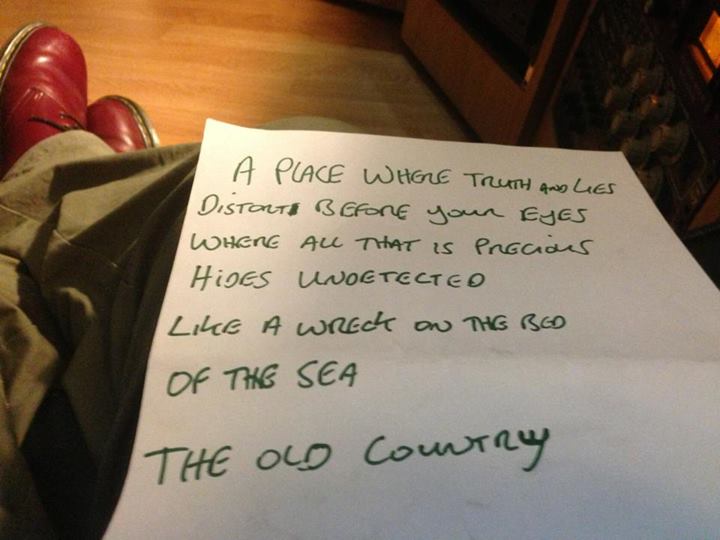 A PLACE WHERE TRUTH AND LIES
DISTORT BEFORE your EYES
WHERE ALL THAT IS PRECIOUS
HIDES UNDETECTED
LIKE A WRECK ON THE BED
OF THE SEA
THE OLD COUNTRY